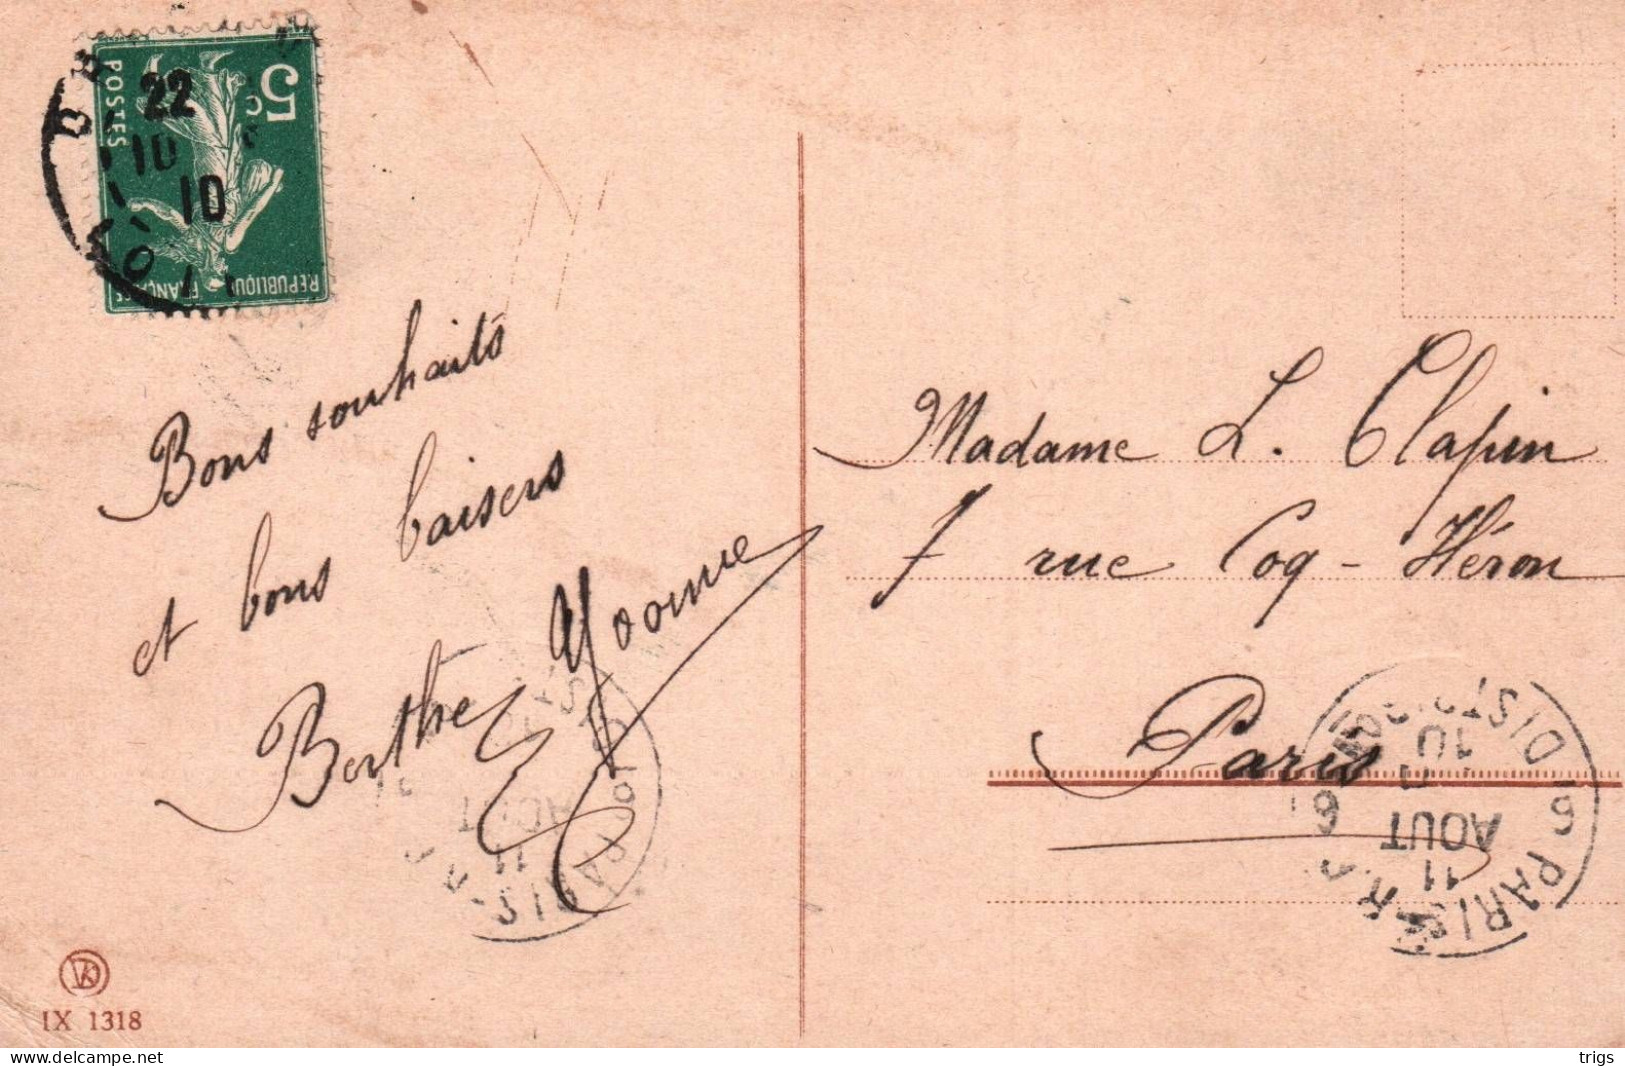 5c
POSTES
REPUBLIQUE FRANÇAISE
22
10
10
Bons souhaits
et bons baisers
Berthe Yvonne
Madame L. Clapin
7 rue Coq-Héron
Paris
PARIS R.P.
DISTRIBUTION
10
AOUT
11
AOUT
11
IX 1318
https://www.delcampe.net
trigs